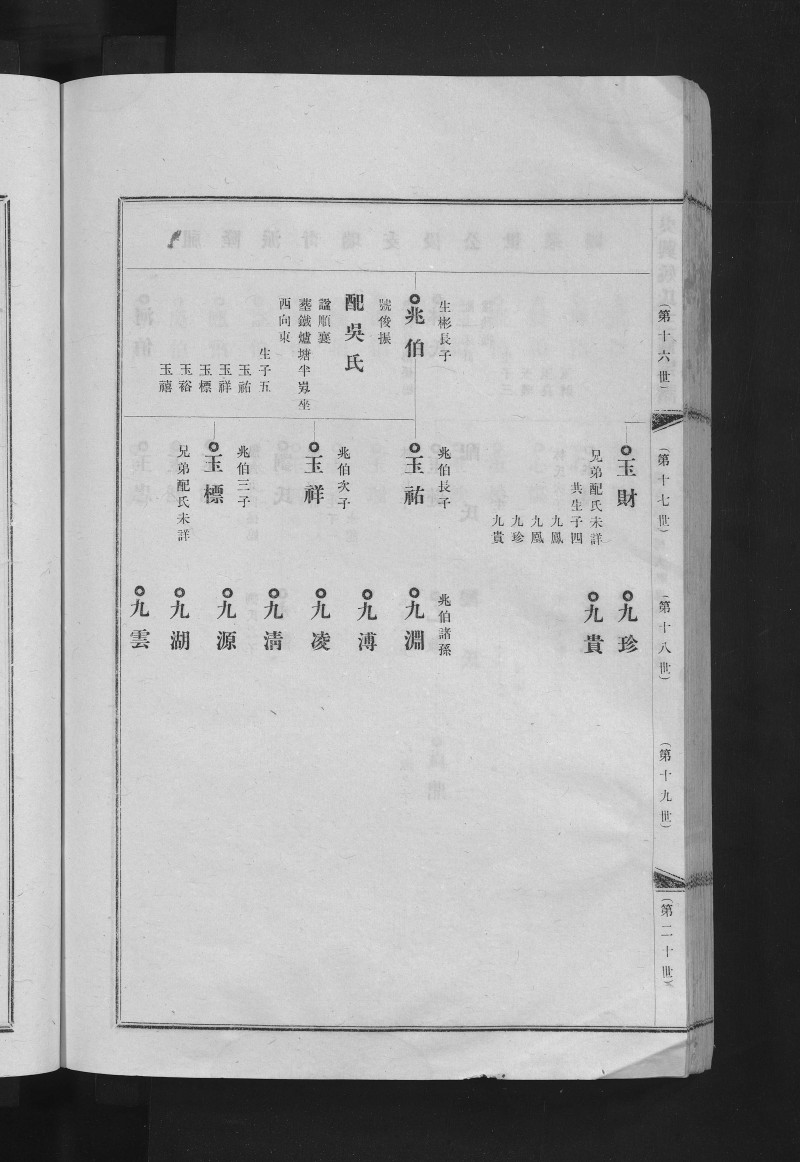 （第十六世）
生彬長子
兆伯
號俊振
配吳氏
諡順襄
墓鐵爐塘半㟁坐
西向東
生子五
玉祐
玉祥
玉標
玉裕
玉禧
（第十七世）
玉財
兄弟配氏未詳
共生子四
九鳳
九凰
九珍
九貴
兆伯長子
玉祐
兆伯次子
玉祥
兆伯三子
玉標
兄弟配氏未詳
（第十八世）
九珍
九貴
兆伯諸孫
九淵
九溥
九凌
九清
九源
九湖
九雲
（第十九世）
（第二十世）